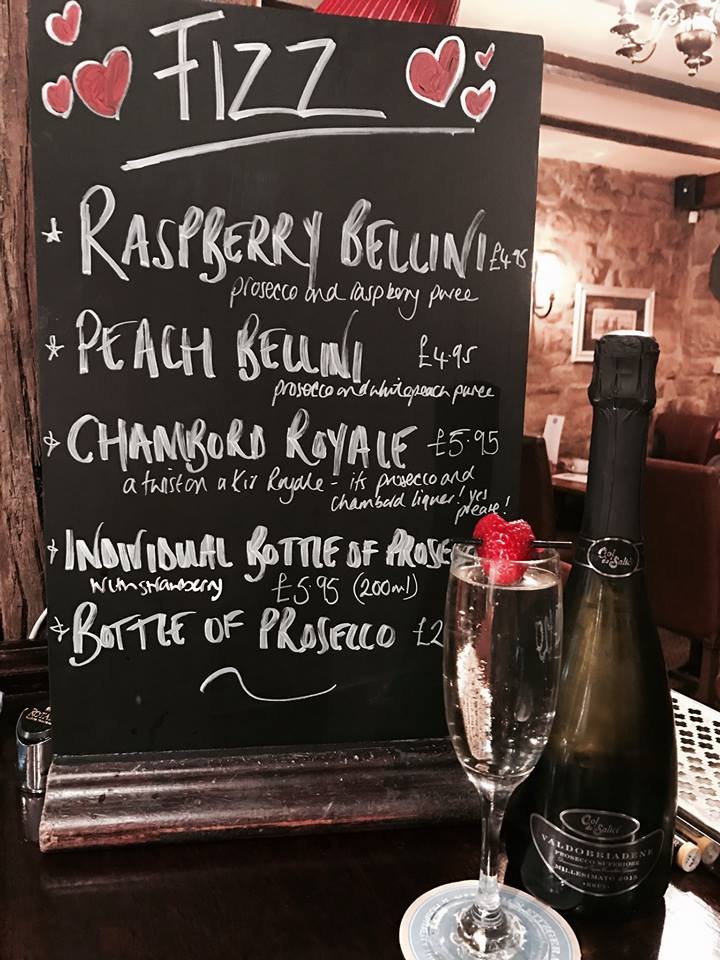 FIZZ
* RASPBERRY BELLINI £4.95
prosecco and raspberry puree
* PEACH BELLINI £4.95
prosecco and white peach puree
* CHAMBORD ROYALE £5.95
a twist on a Kir Royale - its prosecco and
chambord liquer! yes
please!
* INDIVIDUAL BOTTLE OF PROSEC
with strawberry £5.95 (200ml)
* BOTTLE OF PROSECCO £2
Col
de Salici
Col
de Salici
VALDOBBIADENE
PROSECCO SUPERIORE
MILLESIMATO 2015
BRUT